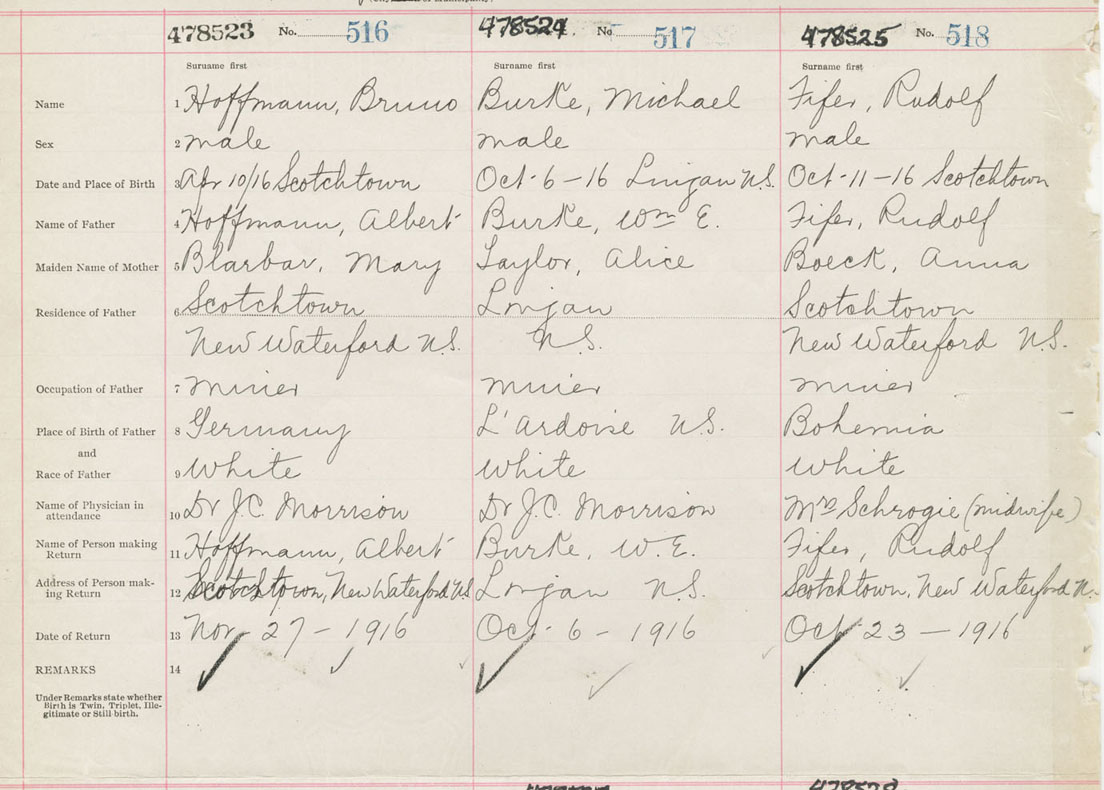 478523 No. 516 478524 No. 517 478525 No. 518
Surname first Surname first Surname first
Name 1 Hoffmann, Bruno Burke, Michael Fifer, Rudolf
Sex 2 male male male
Date and Place of Birth 3 Apr 10/16 Scotchtown Oct-6-16 Lingan N.S. Oct-11-16 Scotchtown
Name of Father 4 Hoffmann, Albert Burke, Wm E. Fifer, Rudolf
Maiden Name of Mother 5 Blarbar, Mary Taylor, Alice Boeck, Anna
Residence of Father 6 Scotchtown Lingan Scotchtown
New Waterford N.S. N.S. New Waterford N.S.
Occupation of Father 7 miner miner miner
Place of Birth of Father 8 Germany L'Ardoise N.S. Bohemia
and
Race of Father 9 White White White
Name of Physician in
attendance 10 Dr J.C. Morrison Dr J.C. Morrison Mrs Schrogie (midwife)
Name of Person making
Return 11 Hoffmann, Albert Burke, W.E. Fifer, Rudolf
Address of Person mak-
ing Return 12 Scotchtown, New Waterford N.S. Lingan N.S. Scotchtown, New Waterford N.
Date of Return 13 Nov 27-1916 Oct-6-1916 Oct 23-1916
REMARKS 14
Under Remarks state whether
Birth is Twin, Triplet, Ille-
gitimate or Still birth.